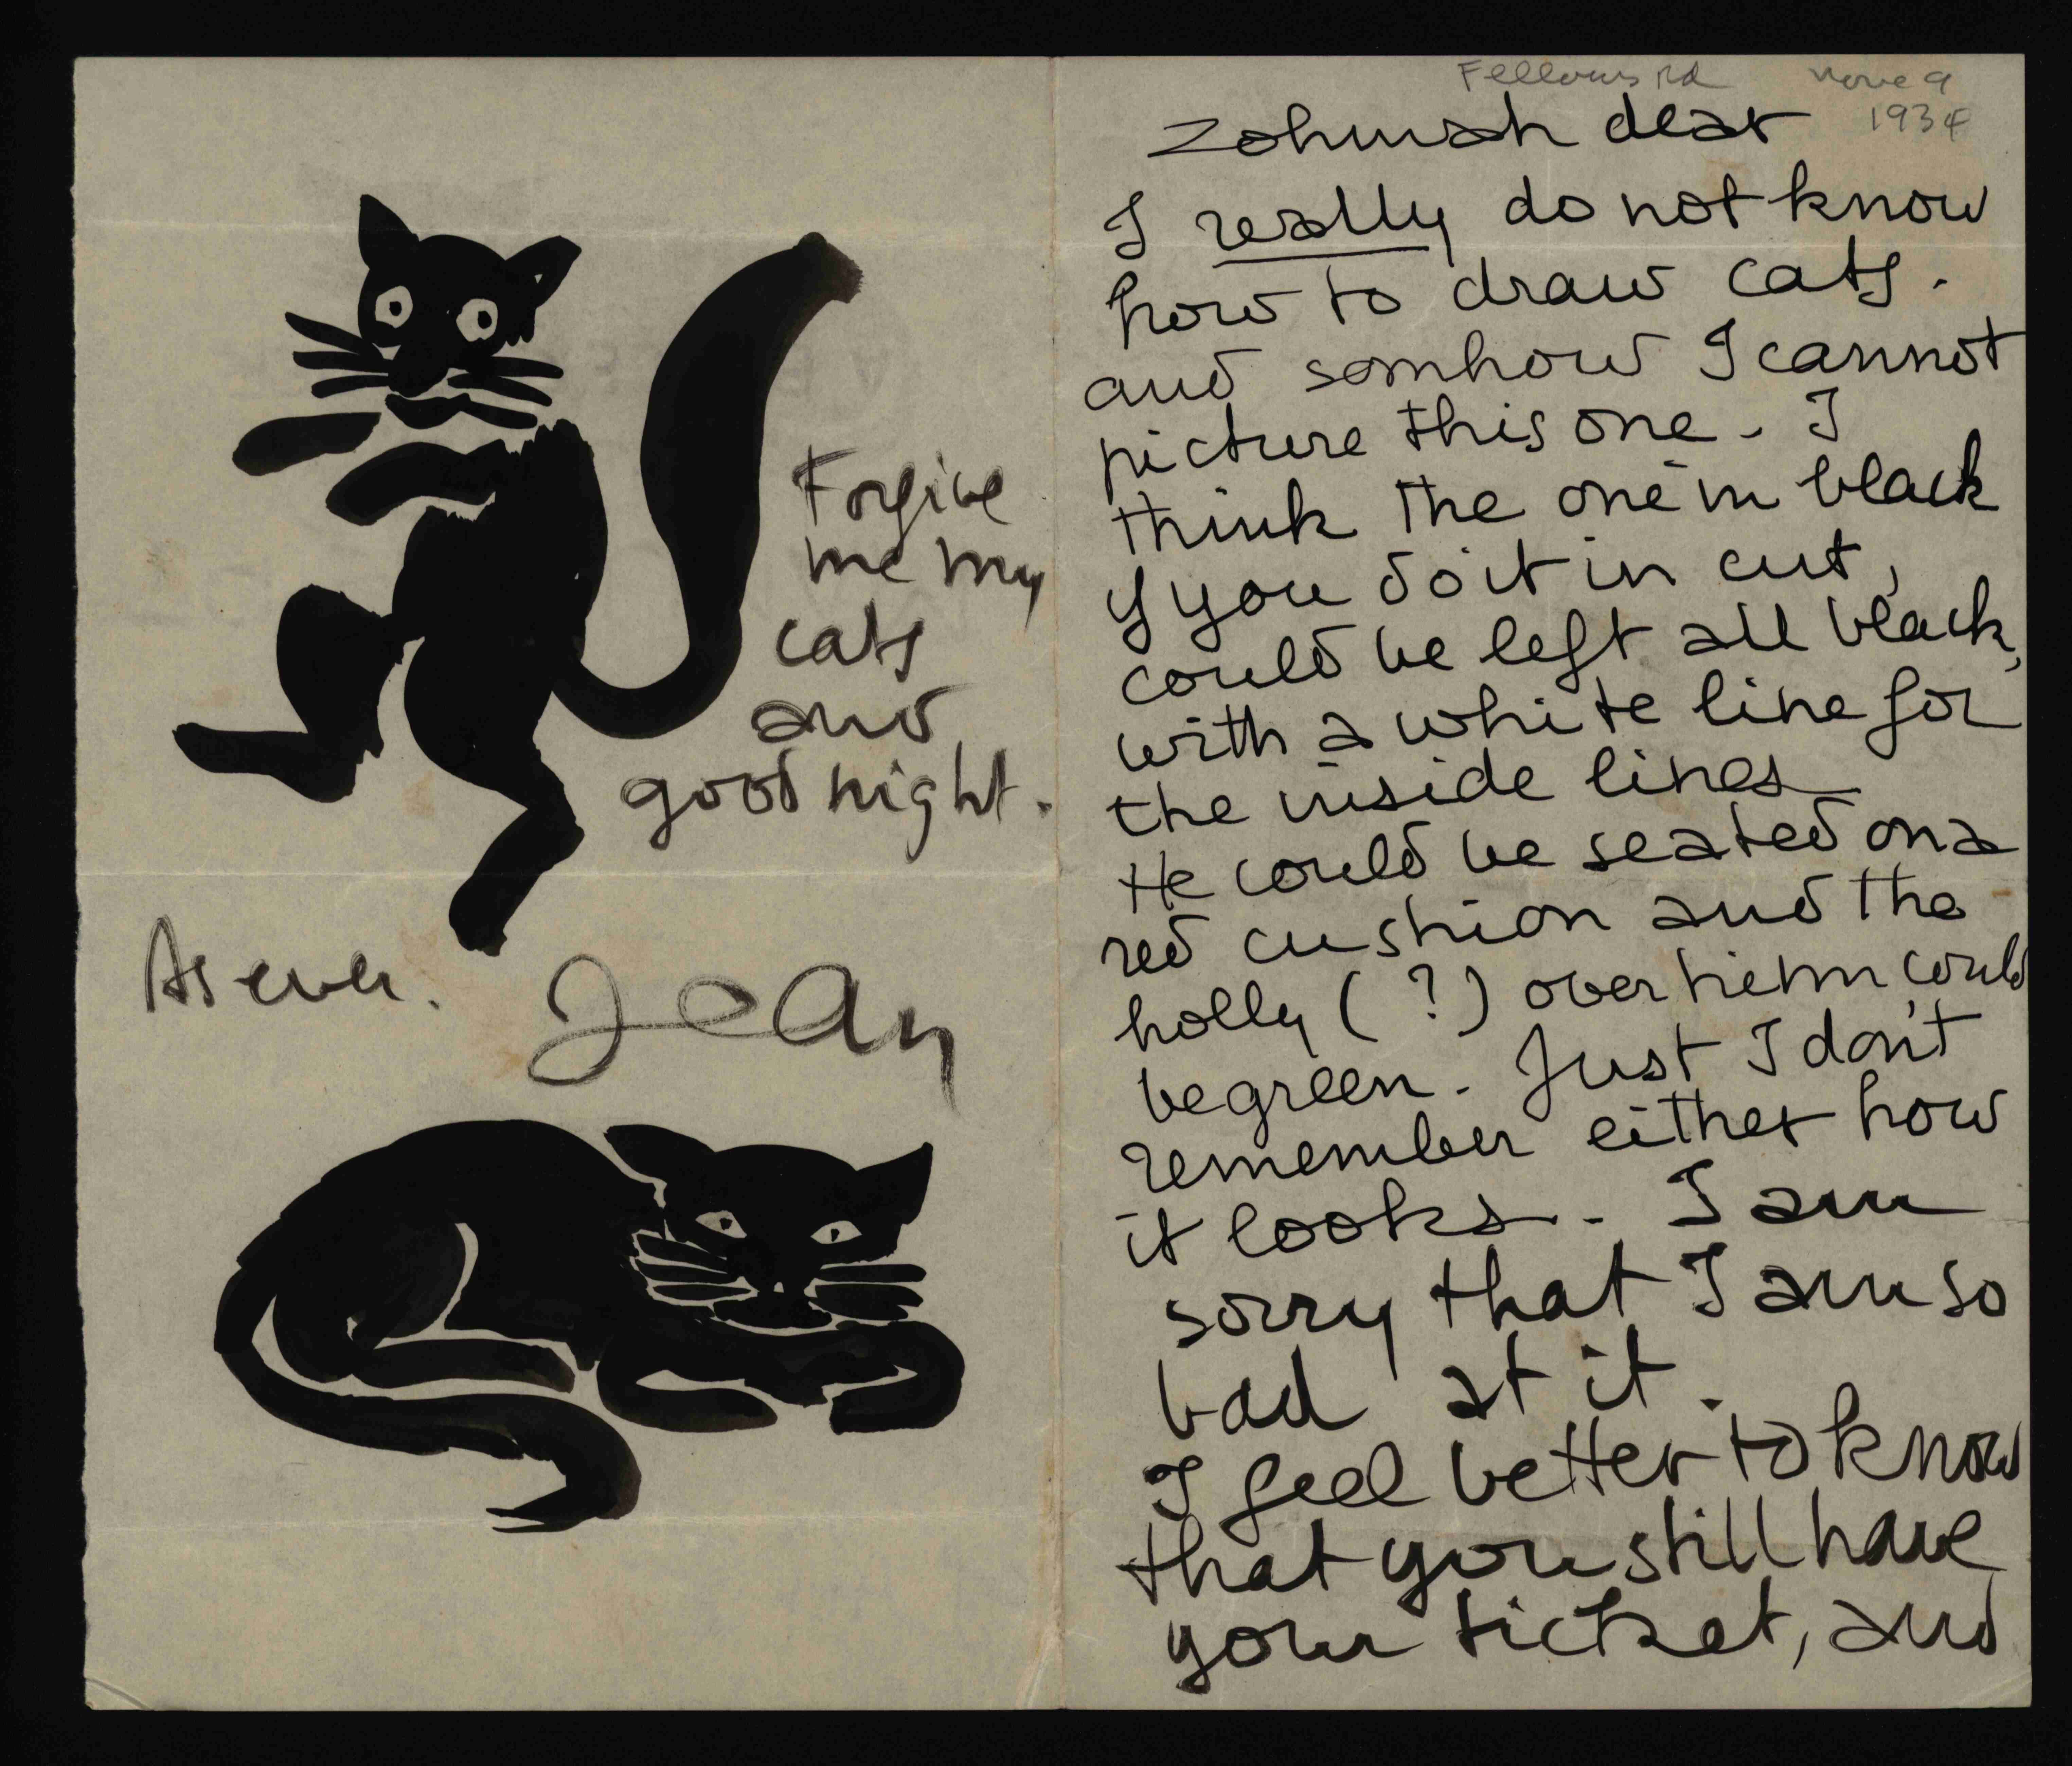 Forgive
me my
cats
and
good night.
As ever.
Jean
Fellows Rd
Nove 9
1934
Zohmah dear
I really do not know
how to draw cats.
and somhow I cannot
picture this one. I
think the one in black
if you do it in cut,
could be left all black,
with a white line for
the inside lines
He could be seated on a
red cushion and the
holly (?) over hiem could
be green. Just I don't
remember either how
it looks. I am
sorry that I am so
bad at it.
I feel better to know
that you still have
your ticket, and